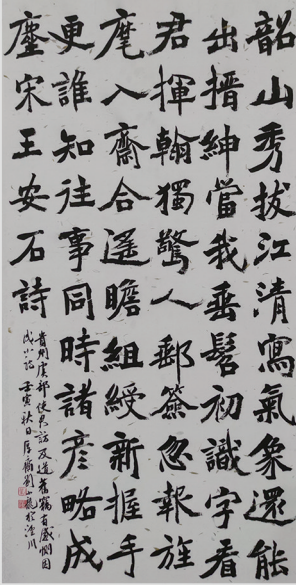 韶山秀拔江清寫氣象還能
出搢紳當我垂髫初識字看
君揮翰獨驚人郵簽忽報旌
麾入齋合遙瞻組綬新握手
更誰知往事同時諸彥略成
塵宋王安石詩
貴州虞部使君訪及道舊竊有感惻因
成小詩 壬寅秋日